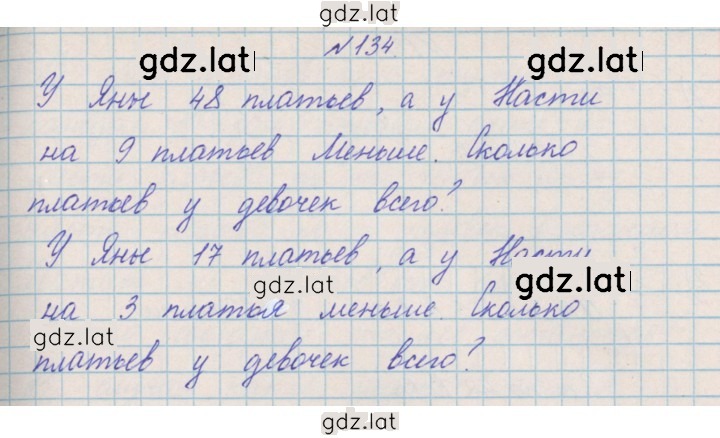 gdz.lat
№134.
gdz.lat gdz.lat
У Яны 48 платьев, а у Насти
на 9 платьев меньше. Сколько
платьев у девочек всего?
У Яны 17 платьев, а у Насти
gdz.lat gdz.lat
на 3 платья меньше. Сколько
gdz.lat
платьев у девочек всего?
gdz.lat